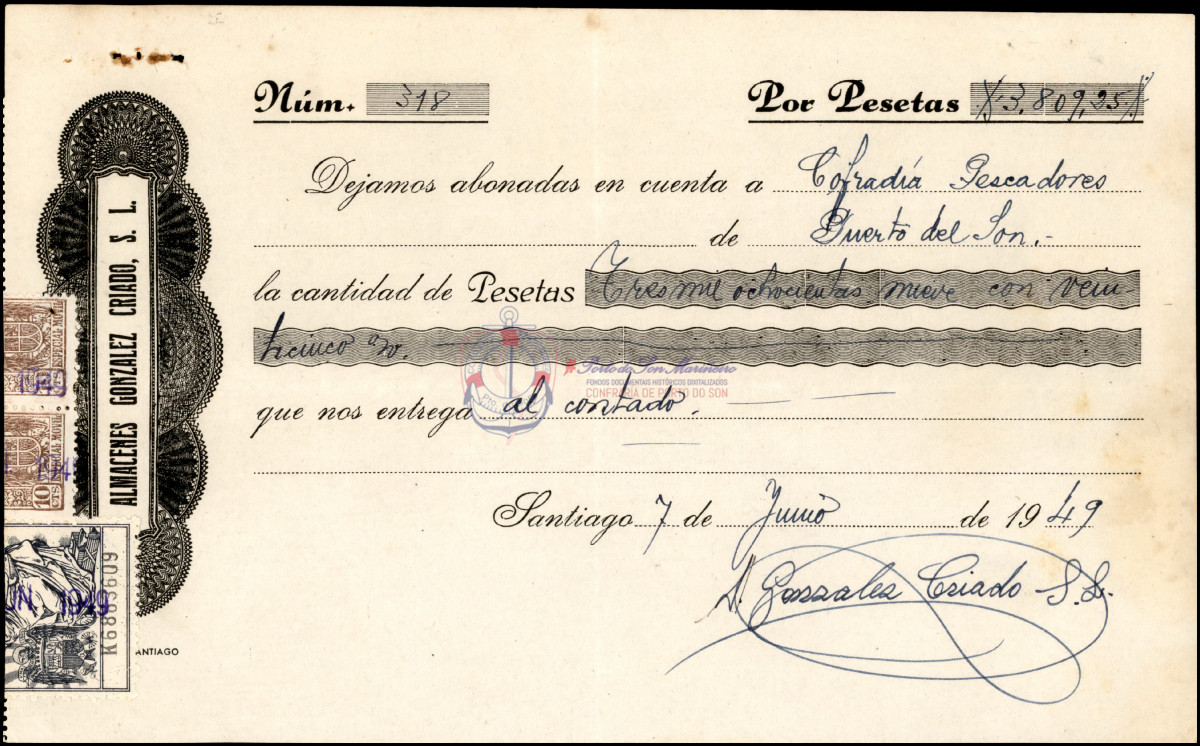 Núm. 318
Por Pesetas 3.809,25
Dejamos abonadas en cuenta a Cofradía Pescadores
de Puerto del Son.-
la cantidad de Pesetas Tres mil ochocientas nueve con vein-
ticinco
que nos entrega al contado.
Santiago 7 de Junio de 1949
A. Gonzalez Criado S.L.
ALMACENES GONZALEZ CRIADO, S. L.
1949
10 CTS
1949
K6883609
ANTIAGO
Porto do Son Mariñeiro
FONDOS DOCUMENTAIS HISTÓRICOS DIXITALIZADOS
CONFRARÍA DE PORTO DO SON